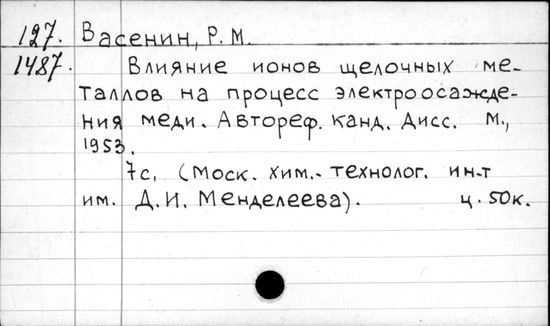 127. Васенин, Р. М.
1487. Влияние ионов щелочных ме-
таллов на процесс электроосажде-
ния меди. Автореф. канд. дисс. М.,
1953.
7с. (Моск. хим.- технолог. ин-т
им. Д. И. Менделеева). ц. 50к.